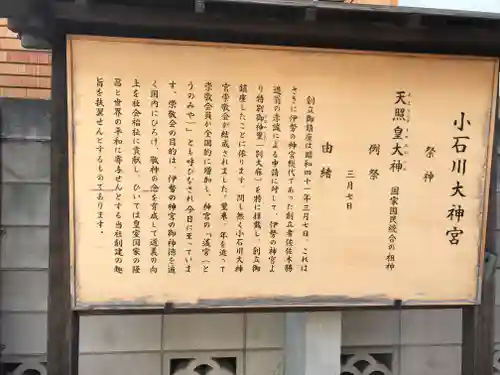 小石川大神宮
祭神
天照皇大神 国家国民統合の祖神
例祭
三月七日
由緒
創立御鎮座は昭和四十一年三月七日、これは
さきに伊勢の神宮総代であった創立者佐佐木勝
造翁の赤誠による申請に対して、伊勢の神宮よ
り特別御神璽「別大麻」を特に拝戴し、創立御
鎮座したことに依ります。間も無く小石川大神
宮崇敬会が結成されました。爾来、年を追って
崇敬会員が全国的に増加し、神宮の「遥宮」(と
うのみや)」とも呼びなされ今日に至っていま
す。崇敬会の目的は、伊勢の神宮の御神徳を遍
く国内にひろげ、敬神の念を育成して道義の向
上を社会福祉に貢献し、ひいては皇室国家の隆
昌と世界の平和に寄与せんとする当社創建の趣
旨を扶翼せんとするものであります。